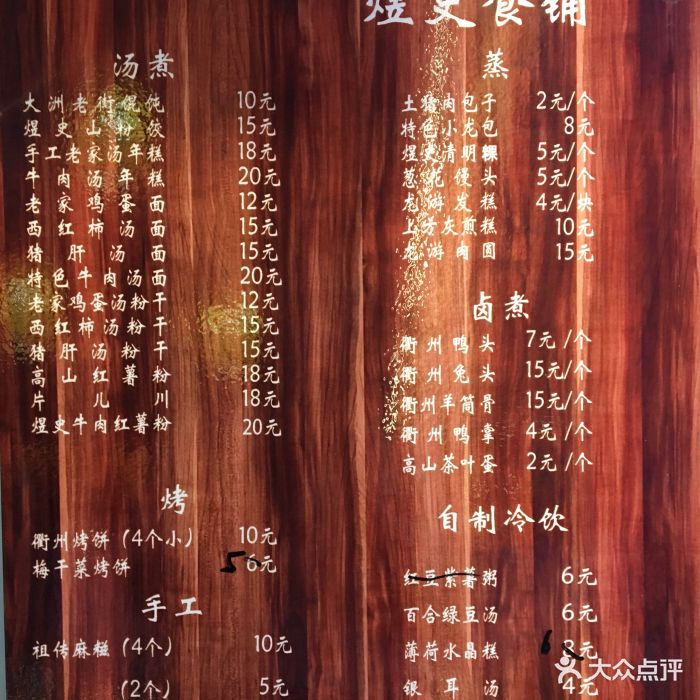 煜史食铺
汤煮
大洲老街馄饨 10元
煜史山粉饺 15元
手工老家汤年糕 18元
牛肉汤年糕 20元
老家鸡蛋面 12元
西红柿汤面 15元
猪肝汤面 15元
特色牛肉汤面 20元
老家鸡蛋汤粉干 12元
西红柿汤粉干 15元
猪肝汤粉干 15元
高山红薯粉 18元
片儿川 18元
煜史牛肉红薯粉 20元
烤
衢州烤饼(4个小) 10元
梅干菜烤饼 5 6元
手工
祖传麻糍(4个) 10元
(2个) 5元
蒸
土猪肉包子 2元/个
特色小龙包 8元
煜史清明粿 5元/个
葱花馒头 5元/个
龙游发糕 4元/块
上方灰煎糕 10元
龙游肉圆 15元
卤煮
衢州鸭头 7元/个
衢州兔头 15元/个
衢州羊筒骨 15元/个
衢州鸭掌 4元/个
高山茶叶蛋 2元/个
自制冷饮
红豆紫薯粥 6元
百合绿豆汤 6元
薄荷水晶糕 6 8元
银耳汤 4元
大众点评